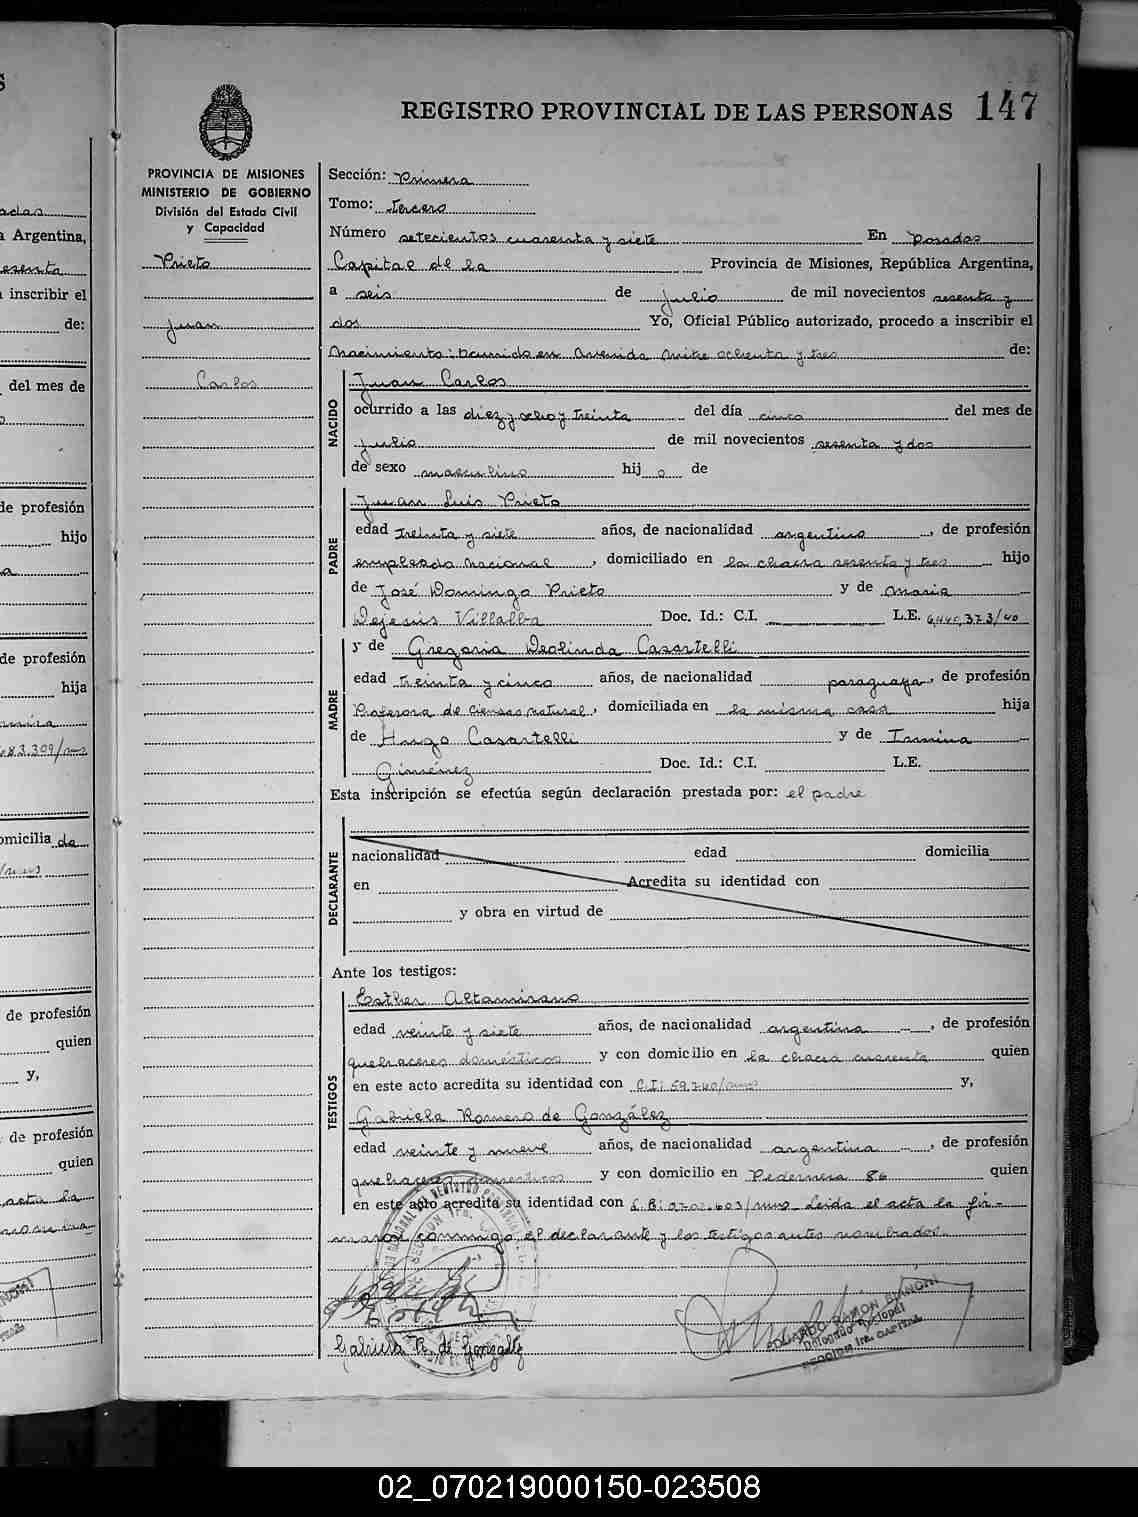 REGISTRO PROVINCIAL DE LAS PERSONAS 147
PROVINCIA DE MISIONES
MINISTERIO DE GOBIERNO
División del Estado Civil
y Capacidad
Prieto
Juan
Carlos
Sección: Primera
Tomo: Tercero
Número setecientos cuarenta y siete En Posadas
Capital de la Provincia de Misiones, República Argentina,
a seis de julio de mil novecientos sesenta y
dos Yo, Oficial Público autorizado, procedo a inscribir el
Nacimiento: ocurrido en Avenida Mitre ochenta y tres de:
NACIDO
Juan Carlos
ocurrido a las diez y ocho y treinta del día cinco del mes de
julio de mil novecientos sesenta y dos
de sexo masculino hij o de
PADRE
Juan Luis Prieto
edad treinta y siete años, de nacionalidad argentino, de profesión
empleado nacional, domiciliado en la chacra sesenta y tres hijo
de José Domingo Prieto y de Maria
Dejesús Villalba Doc. Id.: C.I. L.E. 6,440,373/40
MADRE
y de Gregoria Deolinda Casartelli
edad treinta y cinco años, de nacionalidad paraguaya, de profesión
Profesora de Ciencas natural, domiciliada en la misma casa hija
de Hugo Casartelli y de Irmina
Giménez Doc. Id.: C.I. L.E.
Esta inscripción se efectúa según declaración prestada por: el padre
DECLARANTE
nacionalidad edad domicilia
en Acredita su identidad con
y obra en virtud de
Ante los testigos:
TESTIGOS
Esther Altamirano
edad veinte y siete años, de nacionalidad argentina, de profesión
quehaceres domésticos y con domicilio en la chacra cuarenta quien
en este acto acredita su identidad con C.I: 59.740/mns y,
Gabriela Romero de González
edad veinte y nueve años, de nacionalidad argentina, de profesión
quehaceres domésticos y con domicilio en Pedernera 86 quien
en este acto acredita su identidad con /mns Leida el acta la fir-
maron conmigo, el declarante y los testigos antes nombrados.
Gabriela R. de González
EDUARDO RAMON BIANCHI
Delegado Seccional
SECCION 1ra. CAPITAL
02_070219000150-023508